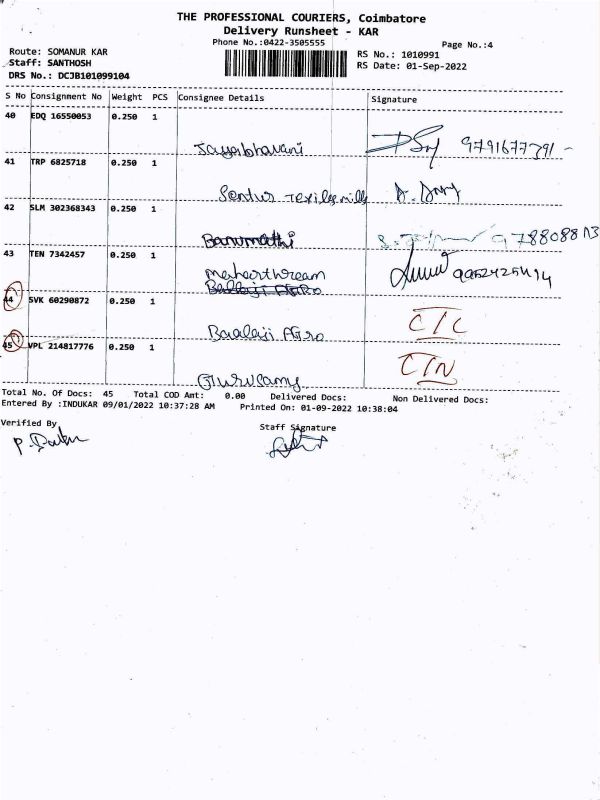 THE PROFESSIONAL COURIERS, Coimbatore
Delivery Runsheet - KAR
Phone No.:0422-3505555
Page No.:4
Route: SOMANUR KAR
RS No.: 1010991
Staff: SANTHOSH
RS Date: 01-Sep-2022
DRS No.: DCJB101099104
S No Consignment No Weight PCS Consignee Details Signature
40 EDQ 16550053 0.250 1
9791677391
41 TRP 6825718 0.250 1
Sentur Textiles mills
42 SLM 302368343 0.250 1
Banumathi
43 TEN 7342457 0.250 1
44 SVK 60290872 0.250 1
Baalaji Agro C/C
45 VPL 214817776 0.250 1
Gurusamy C/N
Total No. Of Docs: 45 Total COD Amt: 0.00 Delivered Docs: Non Delivered Docs:
Entered By :INDUKAR 09/01/2022 10:37:28 AM Printed On: 01-09-2022 10:38:04
Verified By Staff Signature